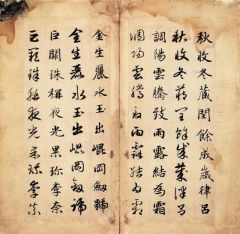 秋收冬藏閏餘成歲律呂
秋收冬藏閏餘成歲律呂
調陽雲騰致雨露結為霜
調陽雲騰致雨露結為霜
金生麗水玉出崐岡劍號
金生麗水玉出崐岡劍號
巨闕珠稱夜光果珍李柰
巨闕珠稱夜光果珍李柰